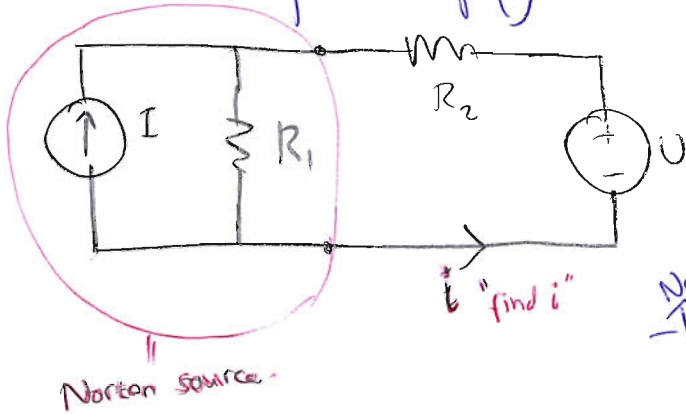 I
R₁
R₂
+
−
U
i "find i"
Norton source.